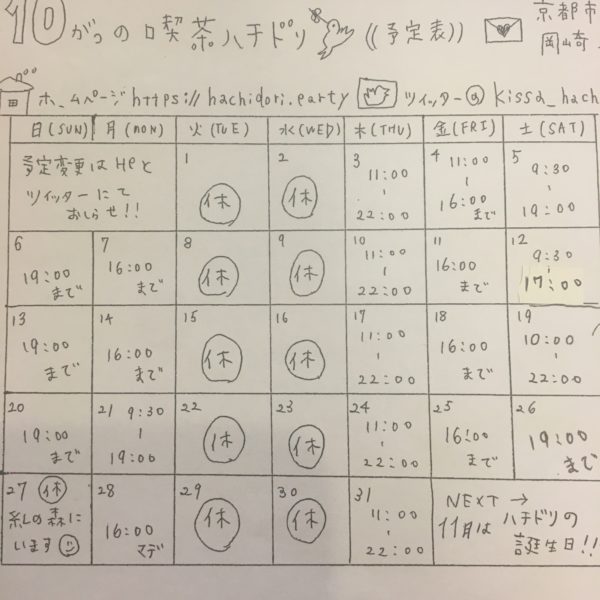 10がつの喫茶ハチドリ ((予定表))
京都市
岡崎
ホームページ https://hachidori.earty ツイッター@kissa_hach
日(SUN) 月(MON) 火(TUE) 水(WED) 木(THU) 金(FRI) 土(SAT)
予定変更はHPと
ツイッターにて
おしらせ!!
1 休
2 休
3 11:00
-
22:00
4 11:00
-
16:00
まで
5 9:30
-
19:00
6 19:00
まで
7 16:00
まで
8 休
9 休
10 11:00
-
22:00
11 16:00
まで
12 9:30
-
17:00
13 19:00
まで
14 16:00
まで
15 休
16 休
17 11:00
-
22:00
18 16:00
まで
19 10:00
-
22:00
20 19:00
まで
21 9:30
-
19:00
22 休
23 休
24 11:00
-
22:00
25 16:00
まで
26 19:00
まで
27 休
糺の森に
います
28 16:00
マデ
29 休
30 休
31 11:00
-
22:00
NEXT →
11月はハチドリの
誕生日!!